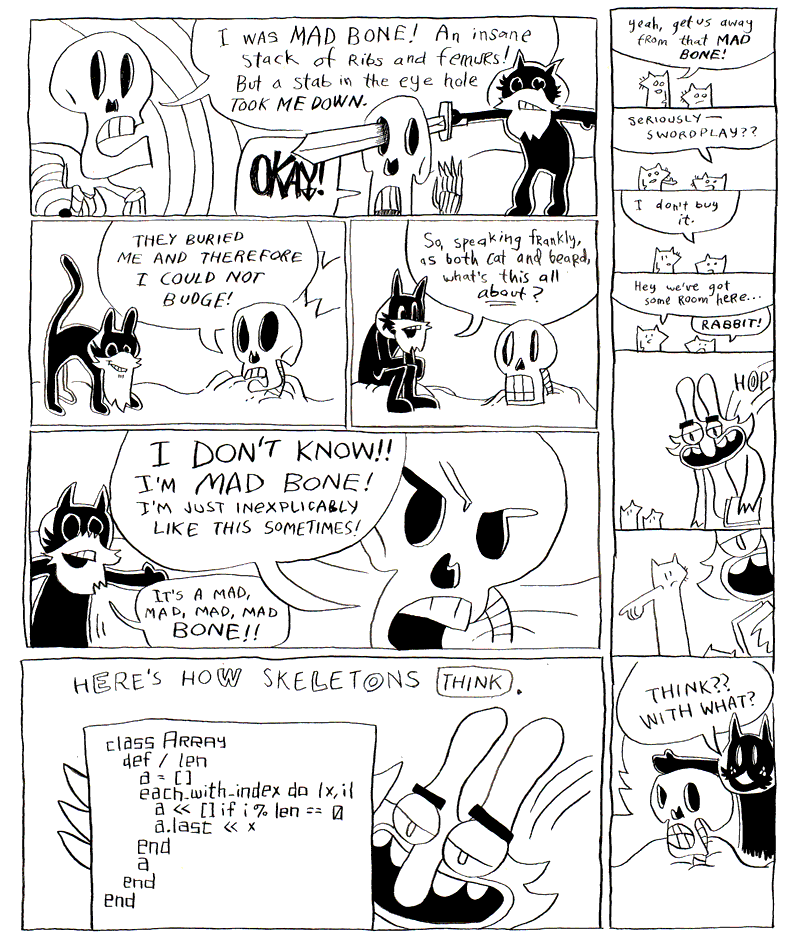 I WAS MAD BONE! An insane
stack of Ribs and femurs!
But a stab in the eye hole
TOOK ME DOWN.
OKAY!
THEY BURIED
ME AND THEREFORE
I COULD NOT
BUDGE!
So, speaking frankly,
as both cat and beard,
what's this all
about?
I DON'T KNOW!!
I'M MAD BONE!
I'M JUST INEXPLICABLY
LIKE THIS SOMETIMES!
IT'S A MAD,
MAD, MAD, MAD
BONE!!
HERE'S HOW SKELETONS THINK.
class ARRAY
def / len
a = []
each_with_index do |x,i|
a << [] if i % len == 0
a.last << x
end
a
end
end
yeah, get us away
from that MAD
BONE!
SERIOUSLY—
SWORDPLAY??
I don't buy
it.
Hey we've got
some Room here...
RABBIT!
HOP
THINK??
WITH WHAT?